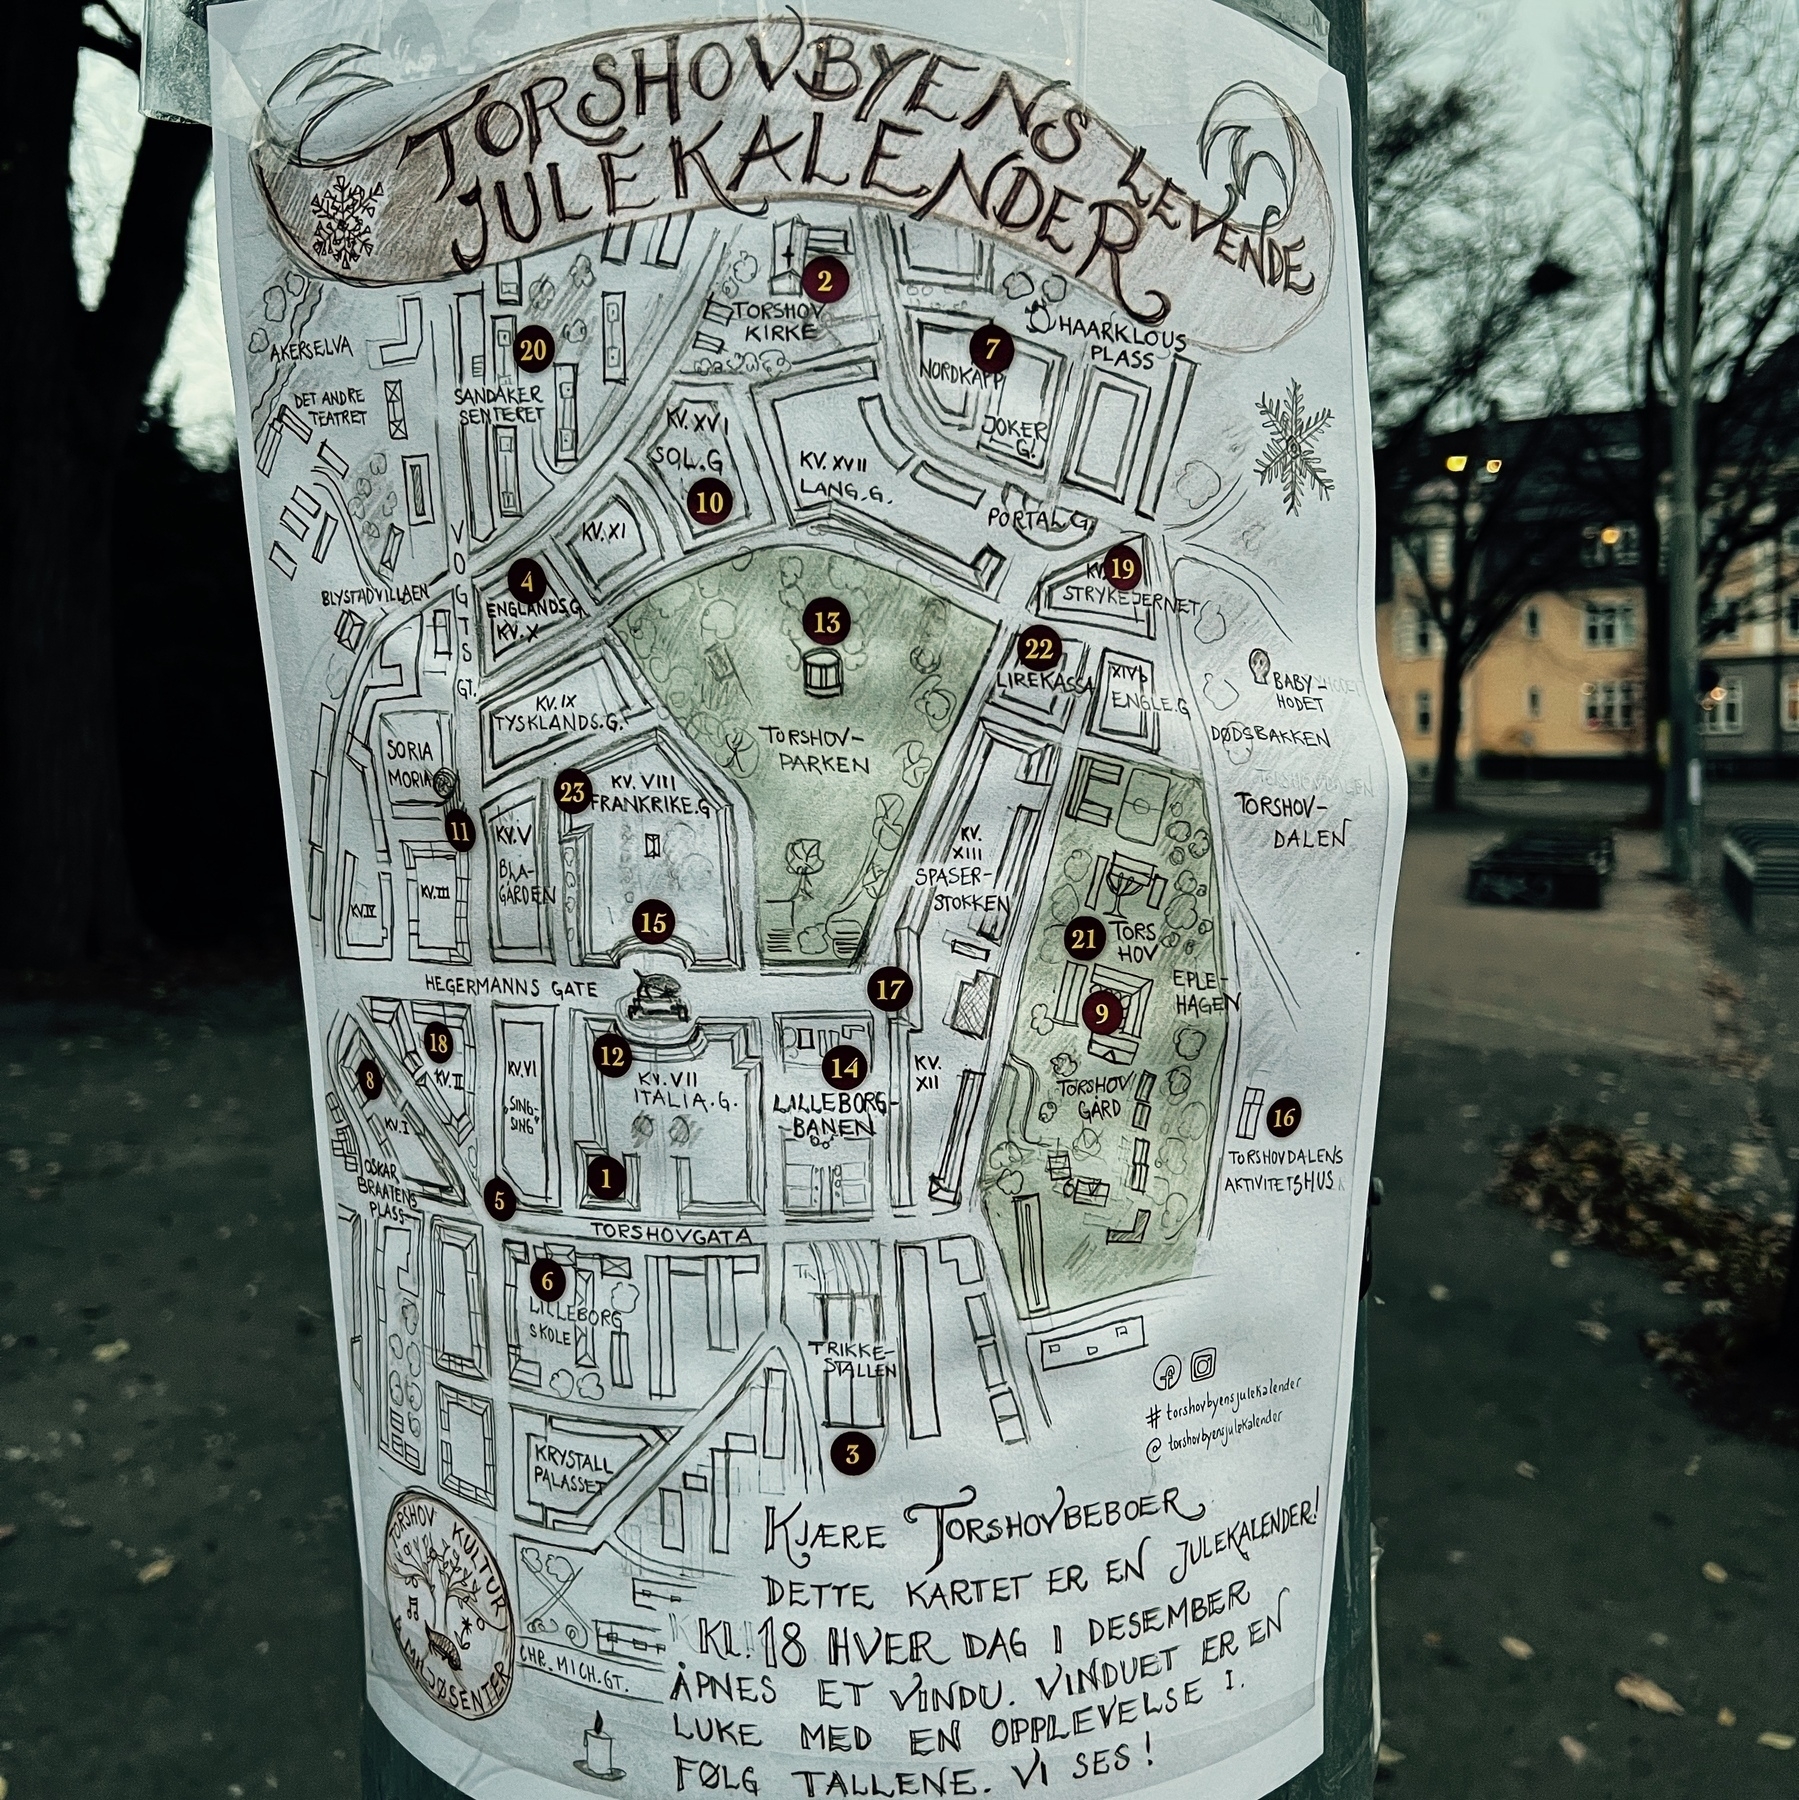 TORSHOVBYENS LEVENDE
JULEKALENDER
2
TORSHOV
KIRKE
AKERSELVA
20
SANDAKER
SENTERET
DET ANDRE
TEATRET
7
NORDKAPP
JOKER
G.
HAARKLOUS
PLASS
KV. XVI
SOL.G
10
KV. XVII
LANG.G.
PORTALG.
KV. XI
VOGTS GT.
4
ENGLANDS.G
KV. X
BLYSTADVILLAEN
19
KV.
STRYKEJERNET
13
TORSHOV-
PARKEN
22
LIREKASSA
XIVb
ENGLE.G
BABY-
HODET
DØDSBAKKEN
TORSHOV-
DALEN
KV. IX
TYSKLANDS.G.
SORIA
MORIA
11
23
KV. VIII
FRANKRIKE.G
KV. V
BLA-
GÅRDEN
KV. III
KV. IV
15
KV.
XIII
SPASER-
STOKKEN
21
TORS
HOV
EPLE-
HAGEN
9
TORSHOV
GÅRD
HEGERMANNS GATE
17
18
KV. II
8
KV. I
KV. VI
"SING-
SING"
12
KV. VII
ITALIA.G.
14
LILLEBORG-
BANEN
KV.
XII
16
TORSHOVDALENS
AKTIVITETSHUS
OSKAR
BRAATENS
PLASS
5
1
TORSHOVGATA
6
LILLEBORG
SKOLE
TRIKKE-
STALLEN
3
KRYSTALL
PALASSET
CHR. MICH. GT.
# torshovbyensjulekalender
@ torshovbyensjulekalender
TORSHOV KULTUR
& MILJØSENTER
KJÆRE TORSHOVBEBOER
DETTE KARTET ER EN JULEKALENDER!
KL. 18 HVER DAG I DESEMBER
ÅPNES ET VINDU. VINDUET ER EN
LUKE MED EN OPPLEVELSE I.
FØLG TALLENE. VI SES!